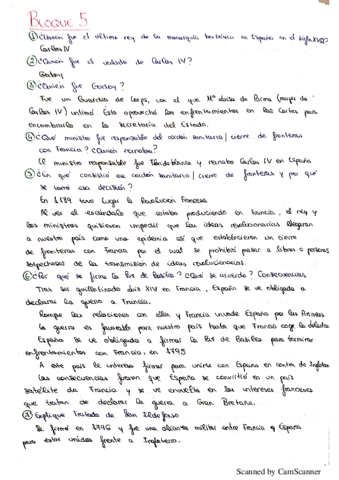 Bloque 5
① ¿Quién fue el último rey de la monarquía borbónica en España en el siglo XVIII?
Carlos IV
② ¿Quién fue el valido de Carlos IV?
Godoy
③ ¿Quién fue Godoy?
Fue un Guardia de Corps, con el que Mª Luisa de Parma (mujer de
Carlos IV) intimó. Este aprovechó los enfrentamientos en las Cortes para
encumbrarlo en la Secretaría del Estado.
④ ¿Qué ministro fue responsable del cordón sanitario / cierre de fronteras
con Francia? ¿Quién reinaba?
El ministro responsable fue Floridablanca y reinaba Carlos IV en España
⑤ ¿En qué consistió ese cordón sanitario / cierre de fronteras y por qué
se tomó esa decisión?
En 1789 tuvo lugar la Revolución Francesa.
el escándalo que estaba produciendo en Francia, el rey y
los ministros quisieron impedir que las ideas revolucionarias llegaran
a nuestro país como una epidemia así que establecieron un cierre
de fronteras con Francia por el cual se prohibió pasar a libros o personas
sospechosas de la transmisión de ideas revolucionarias.
⑥ ¿Por qué se firma la Paz de Basilea? ¿Qué se acuerda? Consecuencias
Tras ser guillotinado Luis XVI en Francia, España se ve obligada a
declarar la guerra a Francia.
Rompe las relaciones con ellos y Francia invade España por los Pirineos.
La guerra es favorable para nuestro país hasta que Francia coge la delantera
España se ve obligada a firmar la Paz de Basilea para terminar
enfrentamientos con Francia, en 1795
A este país le interesa firmar para unirse con España en contra de Inglaterra
Las consecuencias fueron que España se convirtió en un país
satélite de Francia y se ve envuelta en los intereses franceses
que tratan de declarar la guerra a Gran Bretaña.
⑦ Explique Tratado de San Ildefonso
Se firmó en 1796 y fue una alianza militar entre Francia y España
para estar unidos frente a Inglaterra.
Scanned by CamScanner